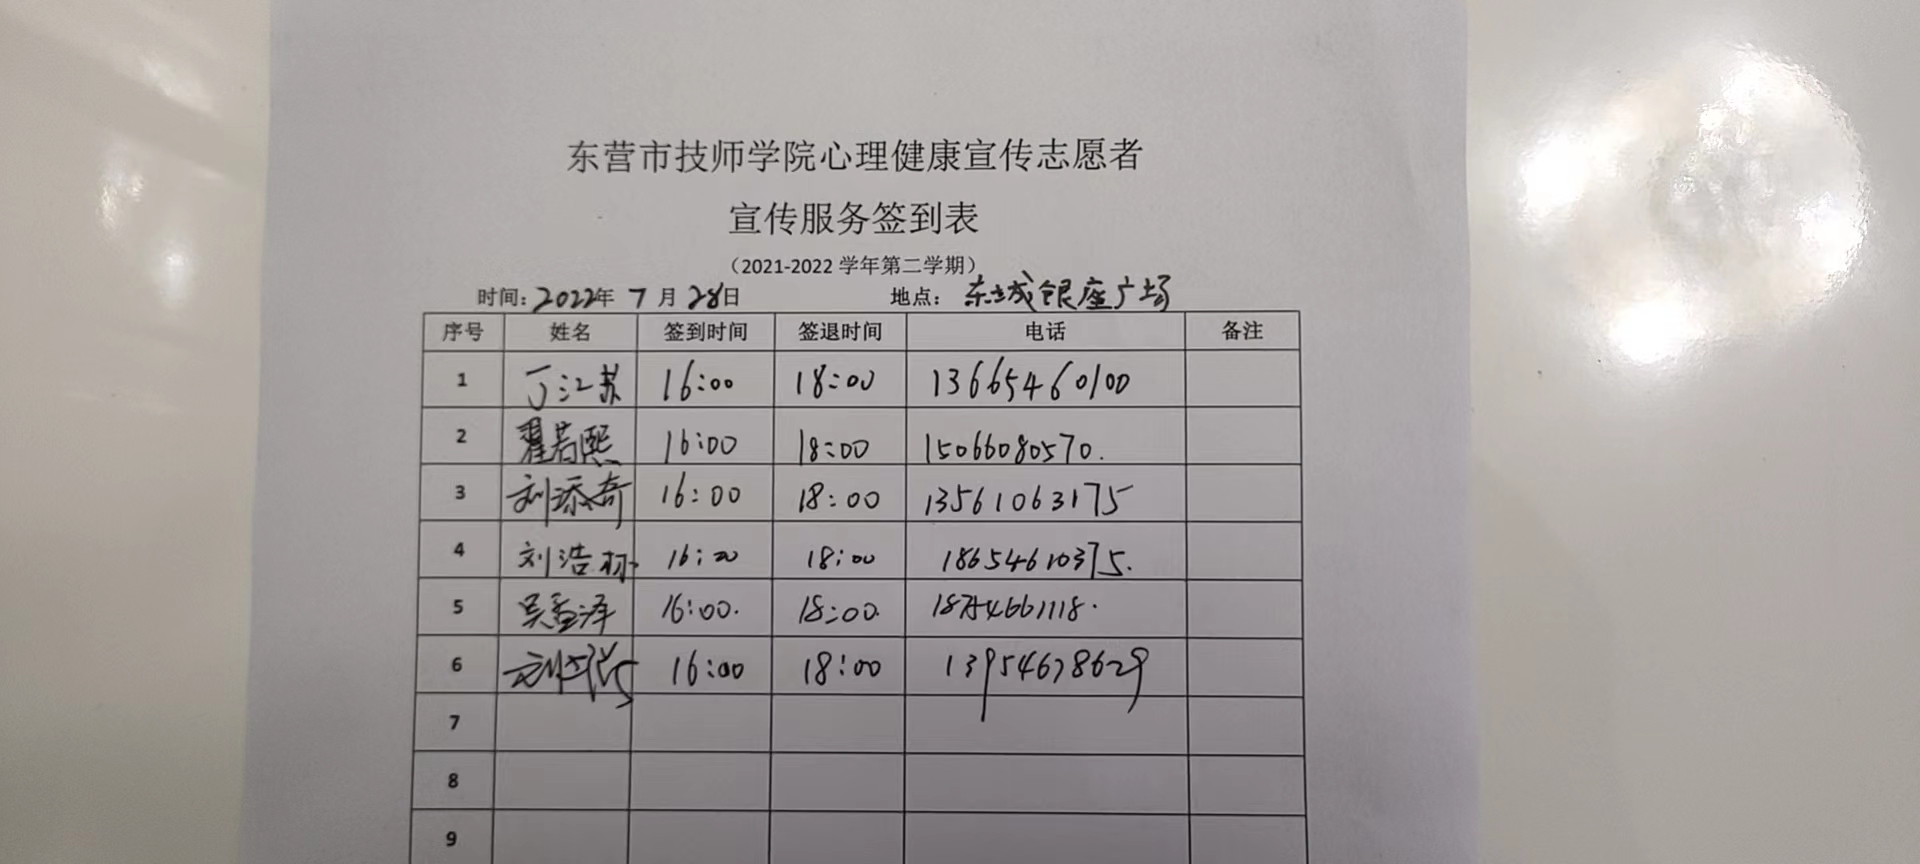 东营市技师学院心理健康宣传志愿者
宣传服务签到表
（2021-2022 学年第二学期）
时间：2022年 7 月 28日 地点：东城银座广场
序号 姓名 签到时间 签退时间 电话 备注
1 丁江苏 16:00 18:00 13665460100
2 翟若熙 16:00 18:00 15066080570.
3 刘添奇 16:00 18:00 13561063175
4 刘浩 16:00 18:00 18654610375.
5 吴 泽 16:00. 18:00. 18754661118.
6 刘 16:00 18:00 13954678629
7
8
9